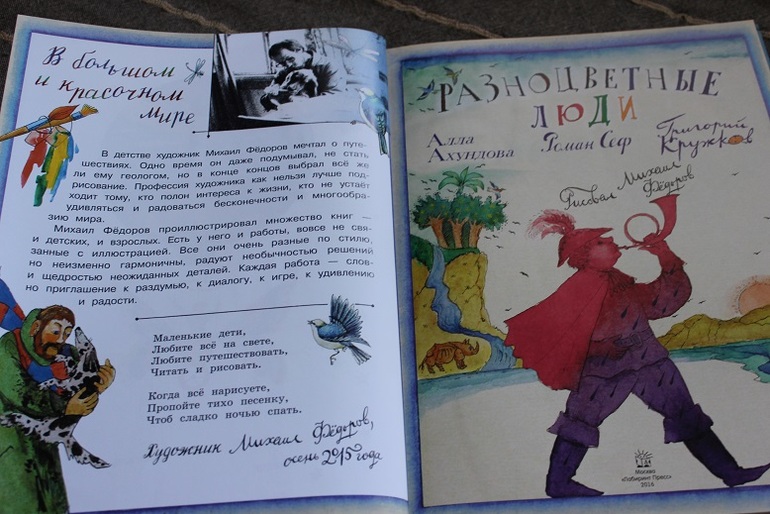 В большом
и красочном
мире
В детстве художник Михаил Фёдоров мечтал о путе-
шествиях. Одно время он даже подумывал, не стать
ли ему геологом, но в конце концов выбрал всё же
рисование. Профессия художника как нельзя лучше под-
ходит тому, кто полон интереса к жизни, кто не устаёт
удивляться и радоваться бесконечности и многообра-
зию мира.
Михаил Фёдоров проиллюстрировал множество книг —
и детских, и взрослых. Есть у него и работы, вовсе не свя-
занные с иллюстрацией. Все они очень разные по стилю,
но неизменно гармоничны, радуют необычностью решений
и щедростью неожиданных деталей. Каждая работа — слов-
но приглашение к раздумью, к диалогу, к игре, к удивлению
и радости.
Маленькие дети,
Любите всё на свете,
Любите путешествовать,
Читать и рисовать.
Когда всё нарисуете,
Пропойте тихо песенку,
Чтоб сладко ночью спать.
Художник Михаил Фёдоров,
осень 2015 года
РАЗНОЦВЕТНЫЕ
ЛЮДИ
Алла
Ахундова
Роман Сеф
Григорий
Кружков
Рисовал Михаил
Фёдоров
Москва
«Лабиринт Пресс»
2016